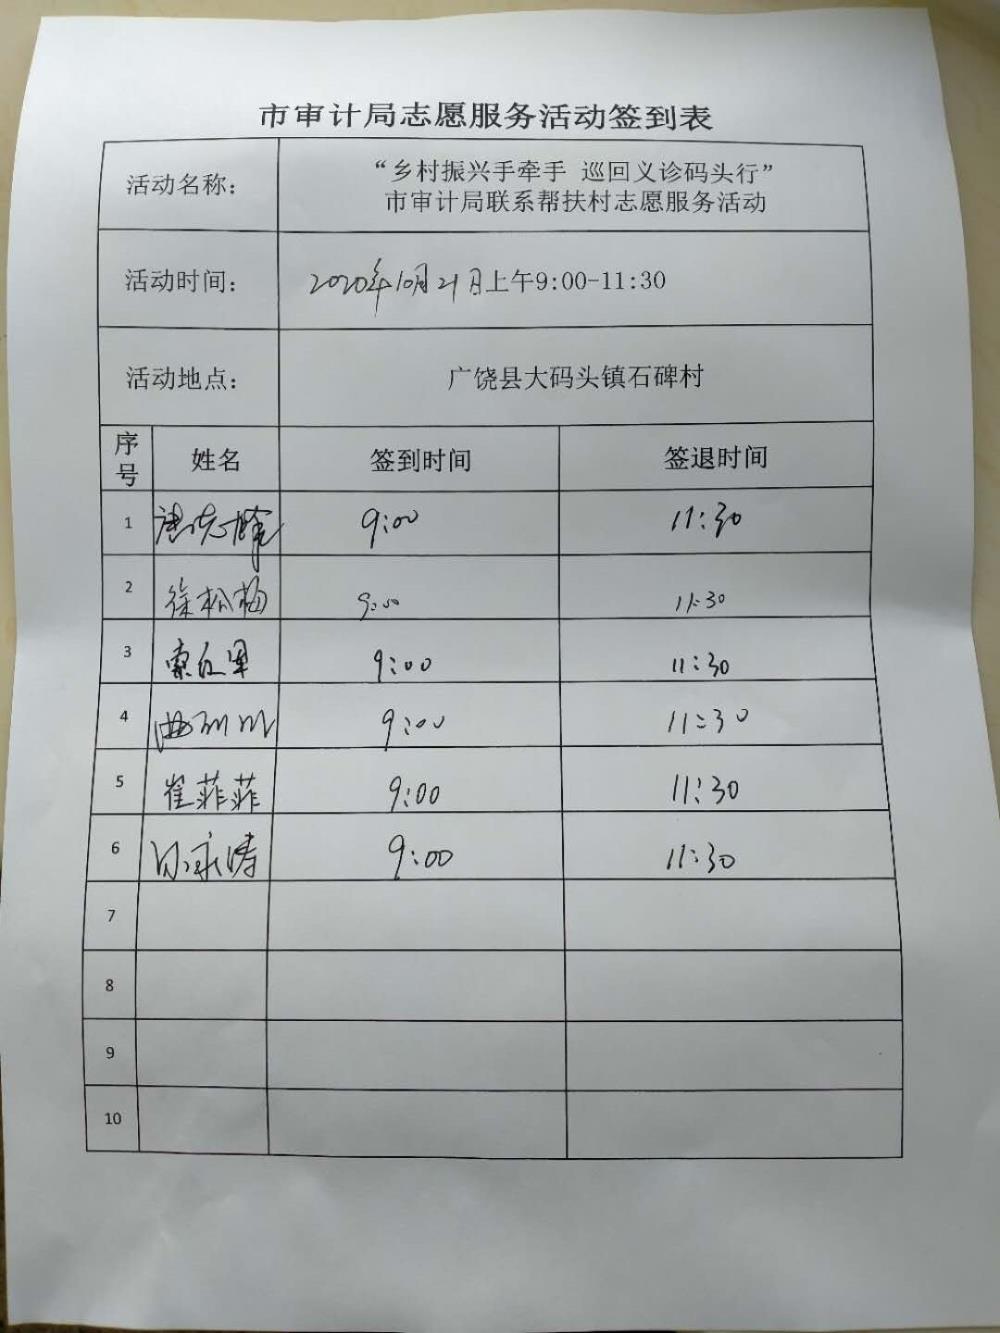 市审计局志愿服务活动签到表
活动名称：
“乡村振兴手牵手 巡回义诊码头行”
市审计局联系帮扶村志愿服务活动
活动时间： 2020年10月21日上午9:00-11:30
活动地点： 广饶县大码头镇石碑村
序号 姓名 签到时间 签退时间
1 9:00 11:30
2 徐松梅 9:00 11:30
3 索红军 9:00 11:30
4 曲丽丽 9:00 11:30
5 崔菲菲 9:00 11:30
6 孙永涛 9:00 11:30
7
8
9
10